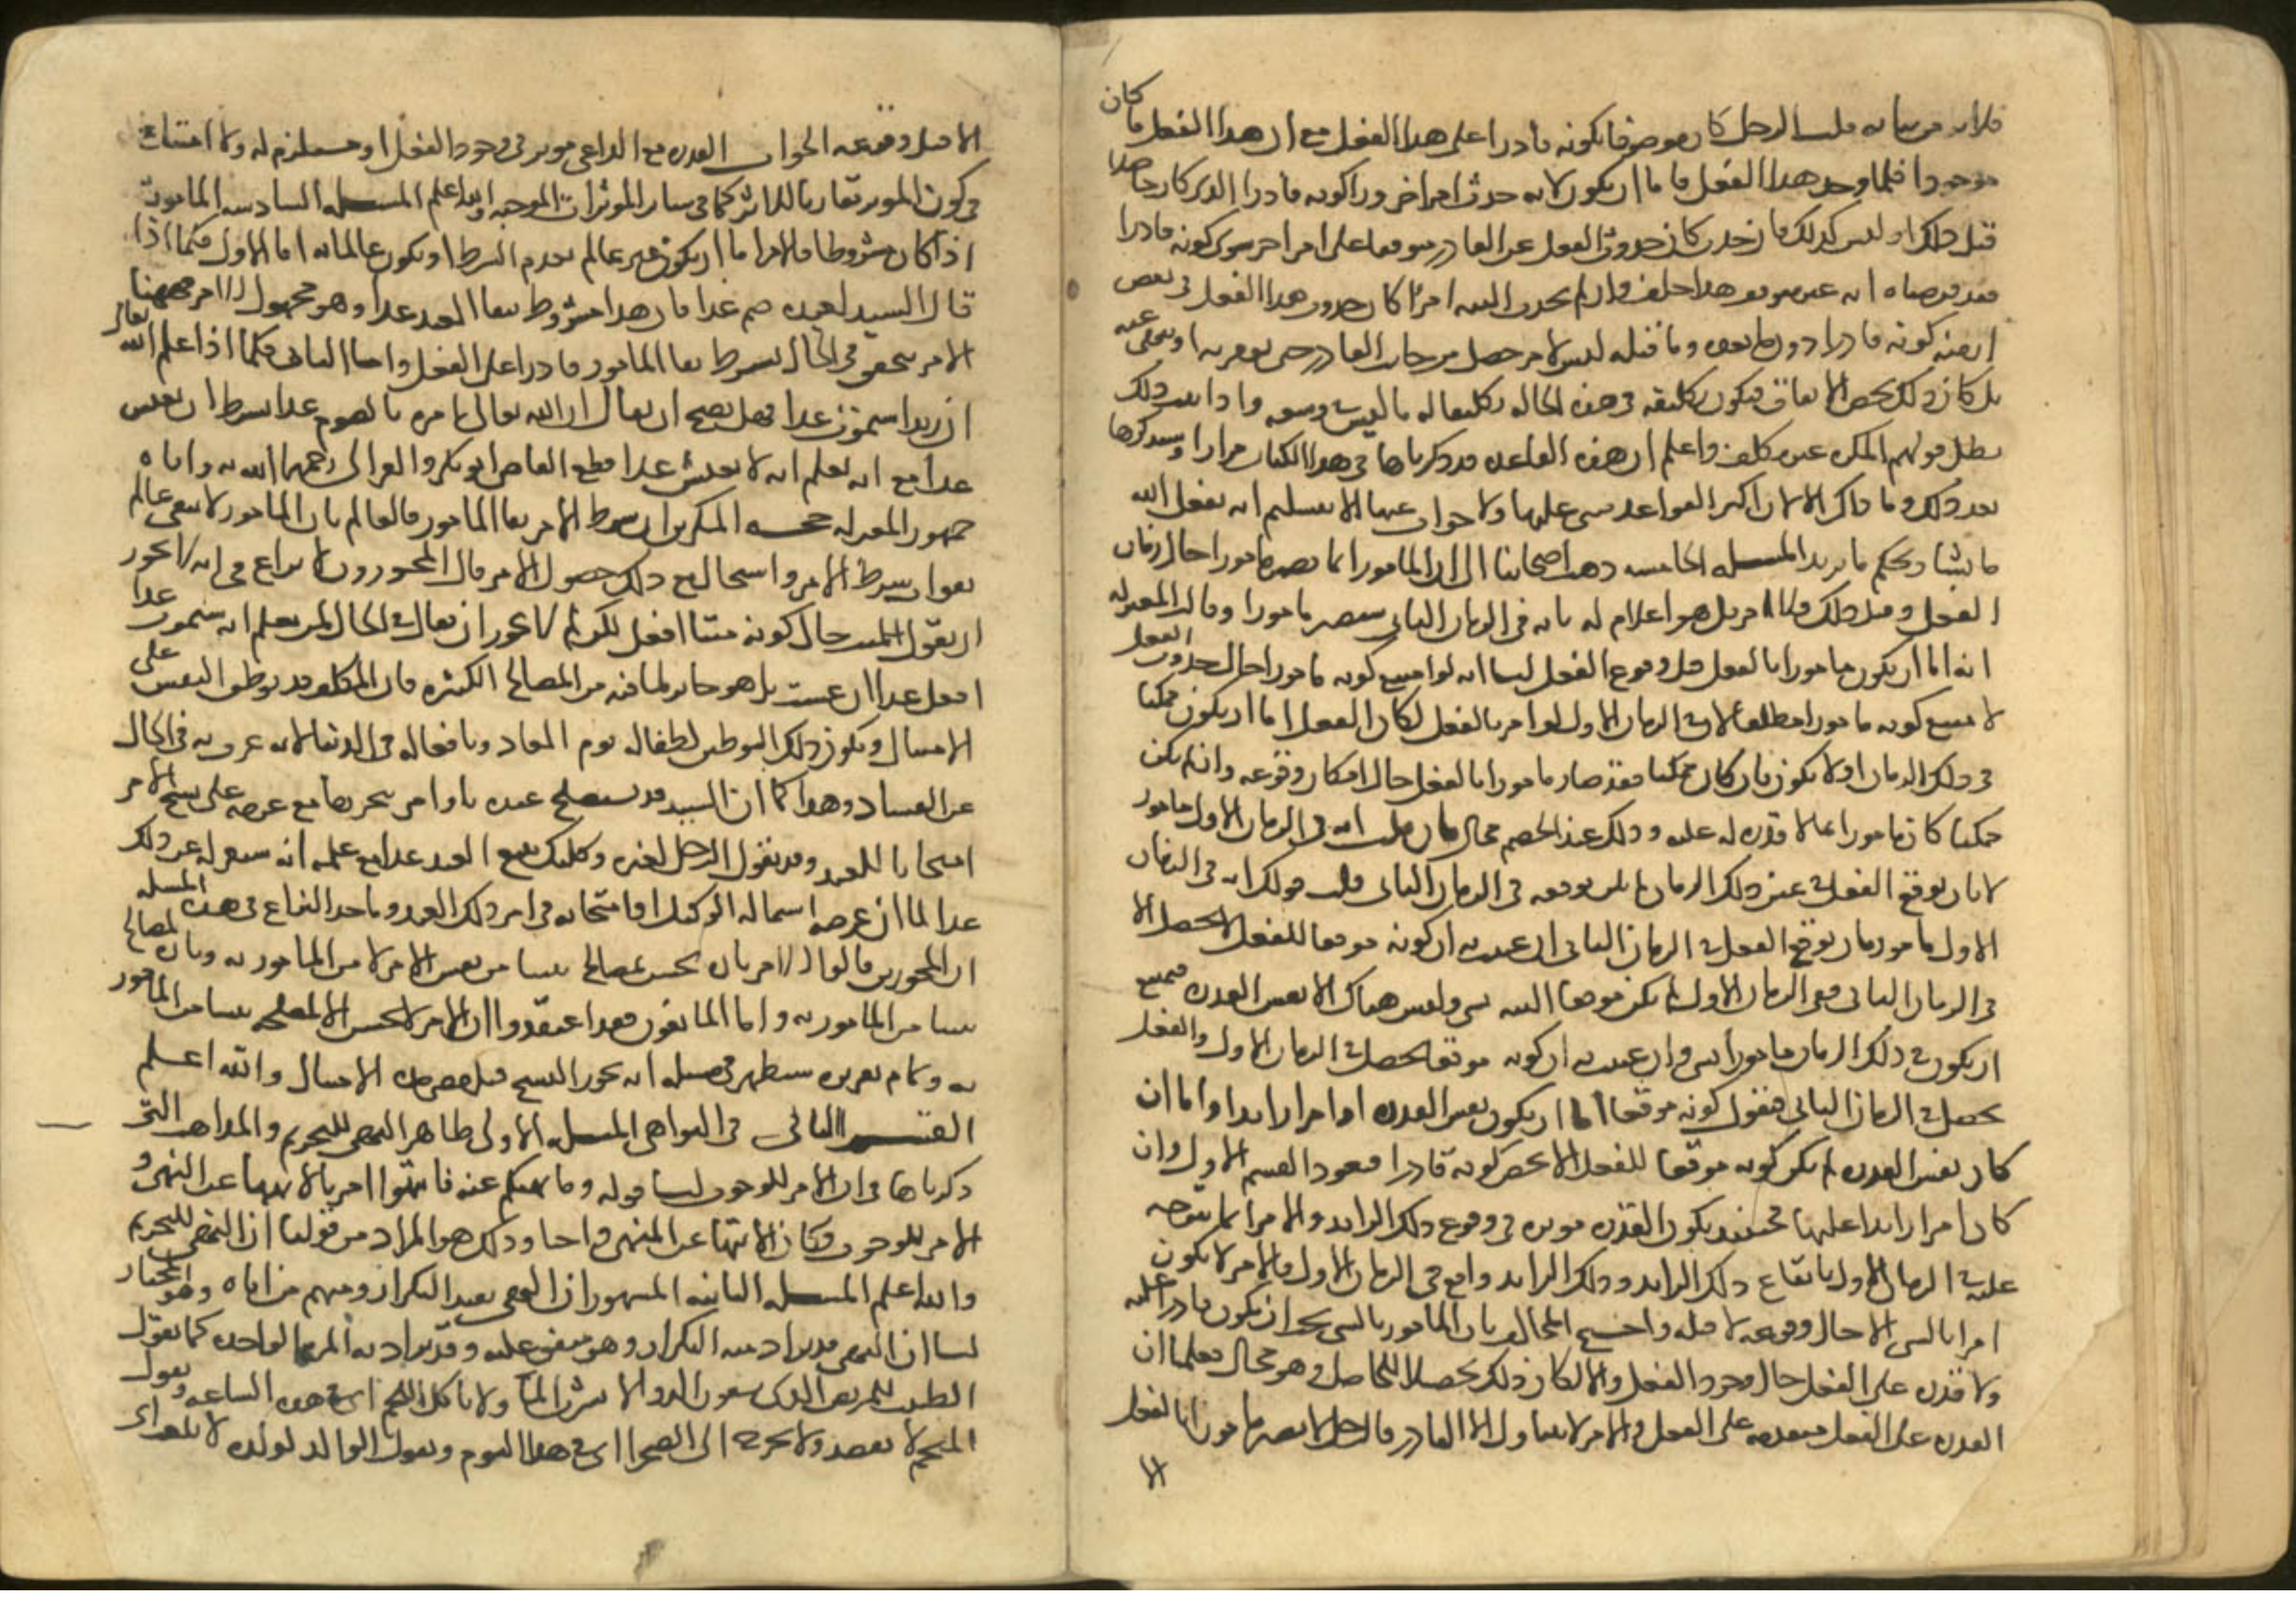 فلا بد من بيانه قلت الرجل كان موصوفا بكونه قادرا على هذا الفعل مع ان هذا الفعل ما كان
موجودا فلما وجد هذا الفعل فاما ان يكون لانه حدث امر اخر وراء كونه قادرا الذي كان حاصلا
قبل ذلك او ليس كذلك فان حدث كان حدوث الفعل عن القادر متوقفا على امر اخر سوى كونه قادرا
وقد فرضناه انه غير متوقف هذا خلف وان لم يحدث البتة امر كان حدوث هذا الفعل في بعض
ازمنة كونه قادرا دون ما بعده وما قبله ليس لامر حصل من جانب القادر حتى يؤمر به او ينهى عنه
بل كان ذلك محض الاتفاق فيكون تكليفه في هذه الحالة تكليفا له بما ليس في وسعه واذا ثبت ذلك
بطل قولهم المكره غير مكلف واعلم ان هذه القاعدة قد ذكرناها في هذا الكتاب مرارا وسنذكرها
بعد ذلك وما ذاك الا لان اكثر القواعد مبني عليها ولا جواب عنها الا بتسليم انه يفعل الله
ما يشا ويحكم ما يريد المسلة الخامسة ذهب اصحابنا الى ان المامور انما يصير مامورا حال زمان
الفعل وقبل ذلك فلا امر بل هو اعلام له بانه في الزمان الثاني سيصير مامورا وقالت المعتزلة
انه انما يكون مامورا بالفعل قبل وقوع الفعل لنا انه لو امتنع كونه مامورا حال حدوث الفعل
لامتنع كونه مامورا مطلقا لان في الزمان الاول لو امر بالفعل لكان الفعل اما ان يكون ممكنا
في ذلك الزمان او لا يكون فان كان ممكنا فقد صار مامورا بالفعل حال امكان وقوعه وان لم يكن
ممكنا كان مامورا بما لا قدرة له عليه وذلك عند الخصم محال فان قلت انه في الزمان الاول مامور
لا بان يوقع الفعل في عين ذلك الزمان بل بان يوقعه في الزمان الثاني قلت قولك انه في الزمان
الاول مامور بان يوقع الفعل في الزمان الثاني ان عنيت به ان كونه موقعا للفعل لا يحصل الا
في الزمان الثاني ففي الزمان الاول لم يكن موقعا البتة لشي وليس هناك الا نفس القدرة فيمتنع
ان يكون في ذلك الزمان مامورا بشي وان عنيت به ان كونه موقعا يحصل في الزمان الاول والفعل
يحصل في الزمان الثاني فنقول كونه موقعا اما ان يكون نفس القدرة او امرا زايدا فاما ان
كان نفس القدرة لم يكن لكونه موقعا للفعل الا محض كونه قادرا فيعود القسم الاول وان
كان امرا زايدا عليها فحينئذ يكون القدرة موثرة في وقوع ذلك الزايد والامر انما يتوجه
عليه في الزمان الاول بايقاع ذلك الزايد وذلك الزايد واقع في الزمان الاول فالامر لا يكون
امرا بالشي الا حال وقوعه لا قبله واحتج المخالف بان المامور بالشي يجب ان يكون قادرا عليه
ولا قدرة على الفعل حال وجود الفعل والا لكان ذلك تحصيلا للحاصل وهو محال فعلمنا ان
القدرة على الفعل متقدمة على الفعل والامر لا يتناول الا القادر فالرجل لا يصير مامورا بالفعل
الا
الا قبل وقوعه الجواب القدرة مع الداعي موثر في وجود الفعل او مستلزم له ولا امتناع
في كون الموثر مقارنا للاثر كما في ساير الموثرات الموجبة والله اعلم المسلة السادسة المامور به
اذا كان مشروطا فالامر اما ان يكون غير عالم بعدم الشرط او يكون عالما به اما الاول فكما اذا
قال السيد لعبده صم غدا فان هذا مشروط ببقا العبد غدا وهو مجهول للامر فههنا
الامر تحقق في الحال بشرط بقا المامور قادرا على الفعل واما الثاني فكما اذا علم الله تعالى
ان زيدا سيموت غدا فهل يصح ان يقال ان الله تعالى يامره بالصوم غدا بشرط ان يعيش
غدا مع انه يعلم انه لا يعيش غدا قطع القاضي ابو بكر والغزالي رحمهما الله به واباه
جمهور المعتزلة حجة المنكرين ان شرط الامر بقا المامور فالعالم بان المامور لا يبقى عالم
بفوات شرط الامر فاستحال مع ذلك حصول الامر قال المجوزون لا نزاع في انه لا يجوز
ان يقول للميت حال كونه ميتا افعل لكن لم لا يجوز ان يقال في الحال لمن يعلم انه سيموت غدا
افعل غدا ان عشت بل هو جايز لما فيه من المصالح الكثيرة فان المكلف قد يوطن النفس على
الامتثال ويكون ذلك التوطين لطفا له يوم المعاد ونافعا له في الدنيا لانه ينحرف به في الحال
عن الفساد وهذا كما ان السيد قد يستصلح عبده باوامر ينجزها مع عزمه على نسخ الامر
امتحانا للعبد وقد يقول الرجل لغيره وكلتك ببيع العبد غدا مع علمه انه سيعزله عن ذلك
غدا لما ان غرضه استمالة الوكيل او امتحانه في امر ذلك العبد وماخذ النزاع في هذه المسلة
ان المجوزين قالوا الامر تارة يحسن لمصالح تنشا من نفس الامر لا من المامور به وتارة لمصالح
تنشا من المامور به واما المانعون فقد اعتقدوا ان الامر لا يحسن الا لمصلحة تنشا من المامور
به وتمام تقريره سيظهر في مسلة انه يجوز النسخ قبل مضي مدة الامتثال والله اعلم
القسم الثاني في النواهي المسلة الاولى ظاهر النهي للتحريم والمذاهب التي
ذكرناها في ان الامر للوجوب لنا قوله وما نهيكم عنه فانتهوا امر بالانتها عن النهي و
الامر للوجوب وكان الانتها عن المنهي واجبا وذلك هو المراد من قولنا ان النهي للتحريم
والله اعلم المسلة الثانية المشهور ان النهي يفيد التكرار ومنهم من اباه وهو المختار
لنا ان النهي قد يراد منه التكرار وهو متفق عليه وقد يراد به المرة الواحدة كما يقول
الطبيب للمريض الذي شرب الدوا لا تشرب الما ولا تاكل اللحم اي في هذه الساعة ويقول
المنجم لا تفصد ولا تخرج الى الصحرا اي في هذا اليوم ويقول الوالد لولده لا تلعب اي